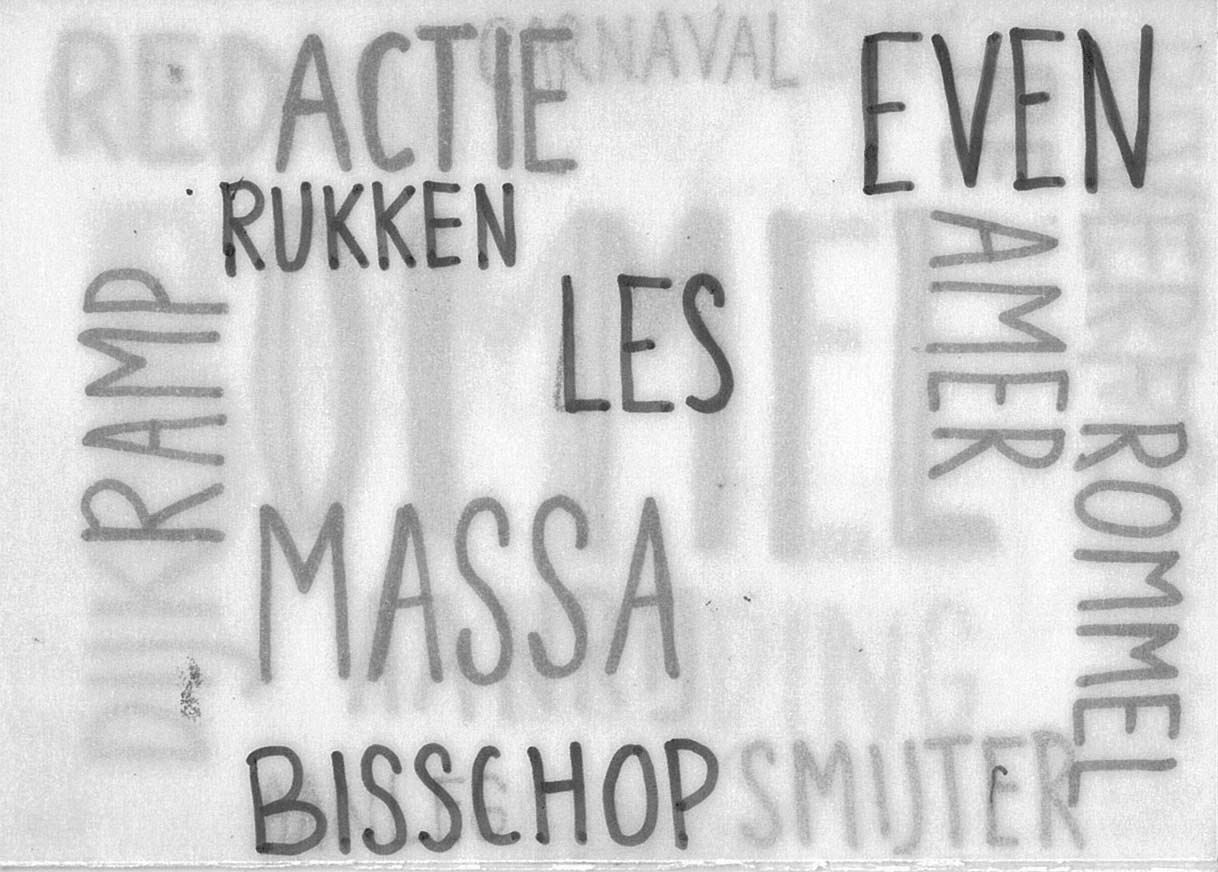 REDACTIE
CARNAVAL
EVEN
RUKKEN
AMER
LES
RAMP
ROMMEL
MASSA
BISSCHOP
SMIJTER